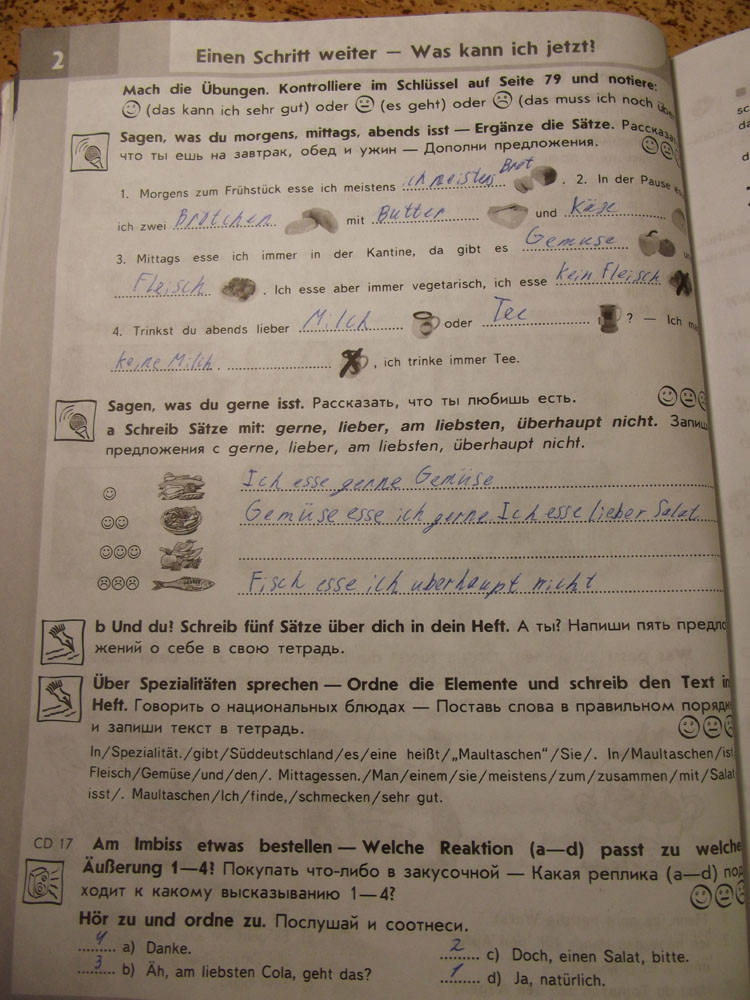 2
Einen Schritt weiter — Was kann ich jetzt?
Mach die Übungen. Kontrolliere im Schlüssel auf Seite 79 und notiere:
(das kann ich sehr gut) oder (es geht) oder (das muss ich noch übe
Sagen, was du morgens, mittags, abends isst — Ergänze die Sätze. Расска
что ты ешь на завтрак, обед и ужин — Дополни предложения.
1. Morgens zum Frühstück esse ich meistens ich meistens Brot . 2. In der Pause e
ich zwei Brötchen mit Butter und Käse
3. Mittags esse ich immer in der Kantine, da gibt es Gemüse u
Fleisch . Ich esse aber immer vegetarisch, ich esse kein Fleisch
4. Trinkst du abends lieber Milch oder Tee ? — Ich m
keine Milch . , ich trinke immer Tee.
Sagen, was du gerne isst. Рассказать, что ты любишь есть.
a Schreib Sätze mit: gerne, lieber, am liebsten, überhaupt nicht. Запиш
предложения с gerne, lieber, am liebsten, überhaupt nicht.
Ich esse gerne Gemüse
Gemüse esse ich gerne Ich esse lieber Salat
Fisch esse ich uberhaupt nicht
b Und du? Schreib fünf Sätze über dich in dein Heft. А ты? Напиши пять предло
жений о себе в свою тетрадь.
Über Spezialitäten sprechen — Ordne die Elemente und schreib den Text in
Heft. Говорить о национальных блюдах — Поставь слова в правильном порядк
и запиши текст в тетрадь.
In/Spezialität./gibt/Süddeutschland/es/eine heißt/„Maultaschen“/Sie/. In/Maultaschen/ist
Fleisch/Gemüse/und/den/. Mittagessen./Man/einem/sie/meistens/zum/zusammen/mit/Salat
isst/. Maultaschen/Ich/finde,/schmecken/sehr gut.
CD 17 Am Imbiss etwas bestellen — Welche Reaktion (a—d) passt zu welche
Äußerung 1—4? Покупать что-либо в закусочной — Какая реплика (a—d) под
ходит к какому высказыванию 1—4?
Hör zu und ordne zu. Послушай и соотнеси.
4 a) Danke. 2 c) Doch, einen Salat, bitte.
3 b) Äh, am liebsten Cola, geht das? 1 d) Ja, natürlich.